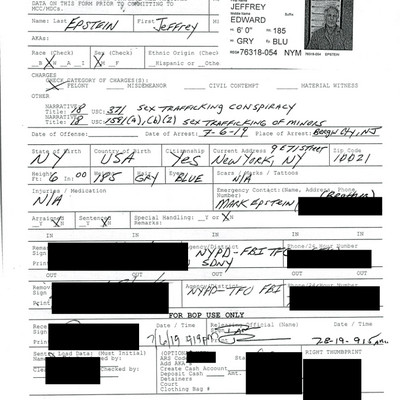 DATA ON THIS FORM PRIOR TO COMMITTING TO
MCC/MDCs.
JEFFREY
EDWARD
6' 0" 185
GRY BLU
76318-054 NYM
76318-054 EPSTEIN
Name: Last EPSTEIN First Jeffrey
AKAs:
Race (Check) Sex (Check) Ethnic Origin (Check)
B X W A I X M F Hispanic or Other
CHARGES
CHECK CATEGORY OF CHARGE(S):
X FELONY MISDEMEANOR CIVIL CONTEMPT MATERIAL WITNESS
OTHER
NARRATIVE:
Title 18 USC: 371 SEX TRAFFICKING CONSPIRACY
NARRATIVE:
Title 18 USC: 1591(a),(b)(2) SEX TRAFFICKING OF MINORS
Date of Offense: Date of Arrest: 7-6-19 Place of Arrest: Bergen City, NJ
State of Birth Country of Birth Citizen Current Address 9 E 71 Street Zip Code
NY USA Yes New York, NY 10021
Height Weight Hair Eyes Scars / Marks / Tattoos
Ft 6 In 00 185 GRY BLUE N/A
Injuries / Medication Emergency Contact: (Name, Address, Phone
N/A Number) MARK EPSTEIN (Brother)
Arraigned Sentenced Special Handling: Y or X N
Y X N Y X N Remarks:
IN IN IN
Agency/District Phone/24 Hour Number
Sign NYPD-FBI TFO
Print SDNY
OUT OUT OUT
Sign Agency/District Phone/24 Hour Number
Print NYPD-TFO FBI
FOR BOP USE ONLY
Date / Time Releasing Official (Name) Date / Time
7/6/19 9:19p
Sentry Load Data: (Must Initial) (OPTIONAL) RIGHT THUMBPRINT
Name ARS Co
Add AKA #
Clearance Create Cash Account
Checked by: Deposit Cash Amt.
Detainers
Court
Clothing Bag #